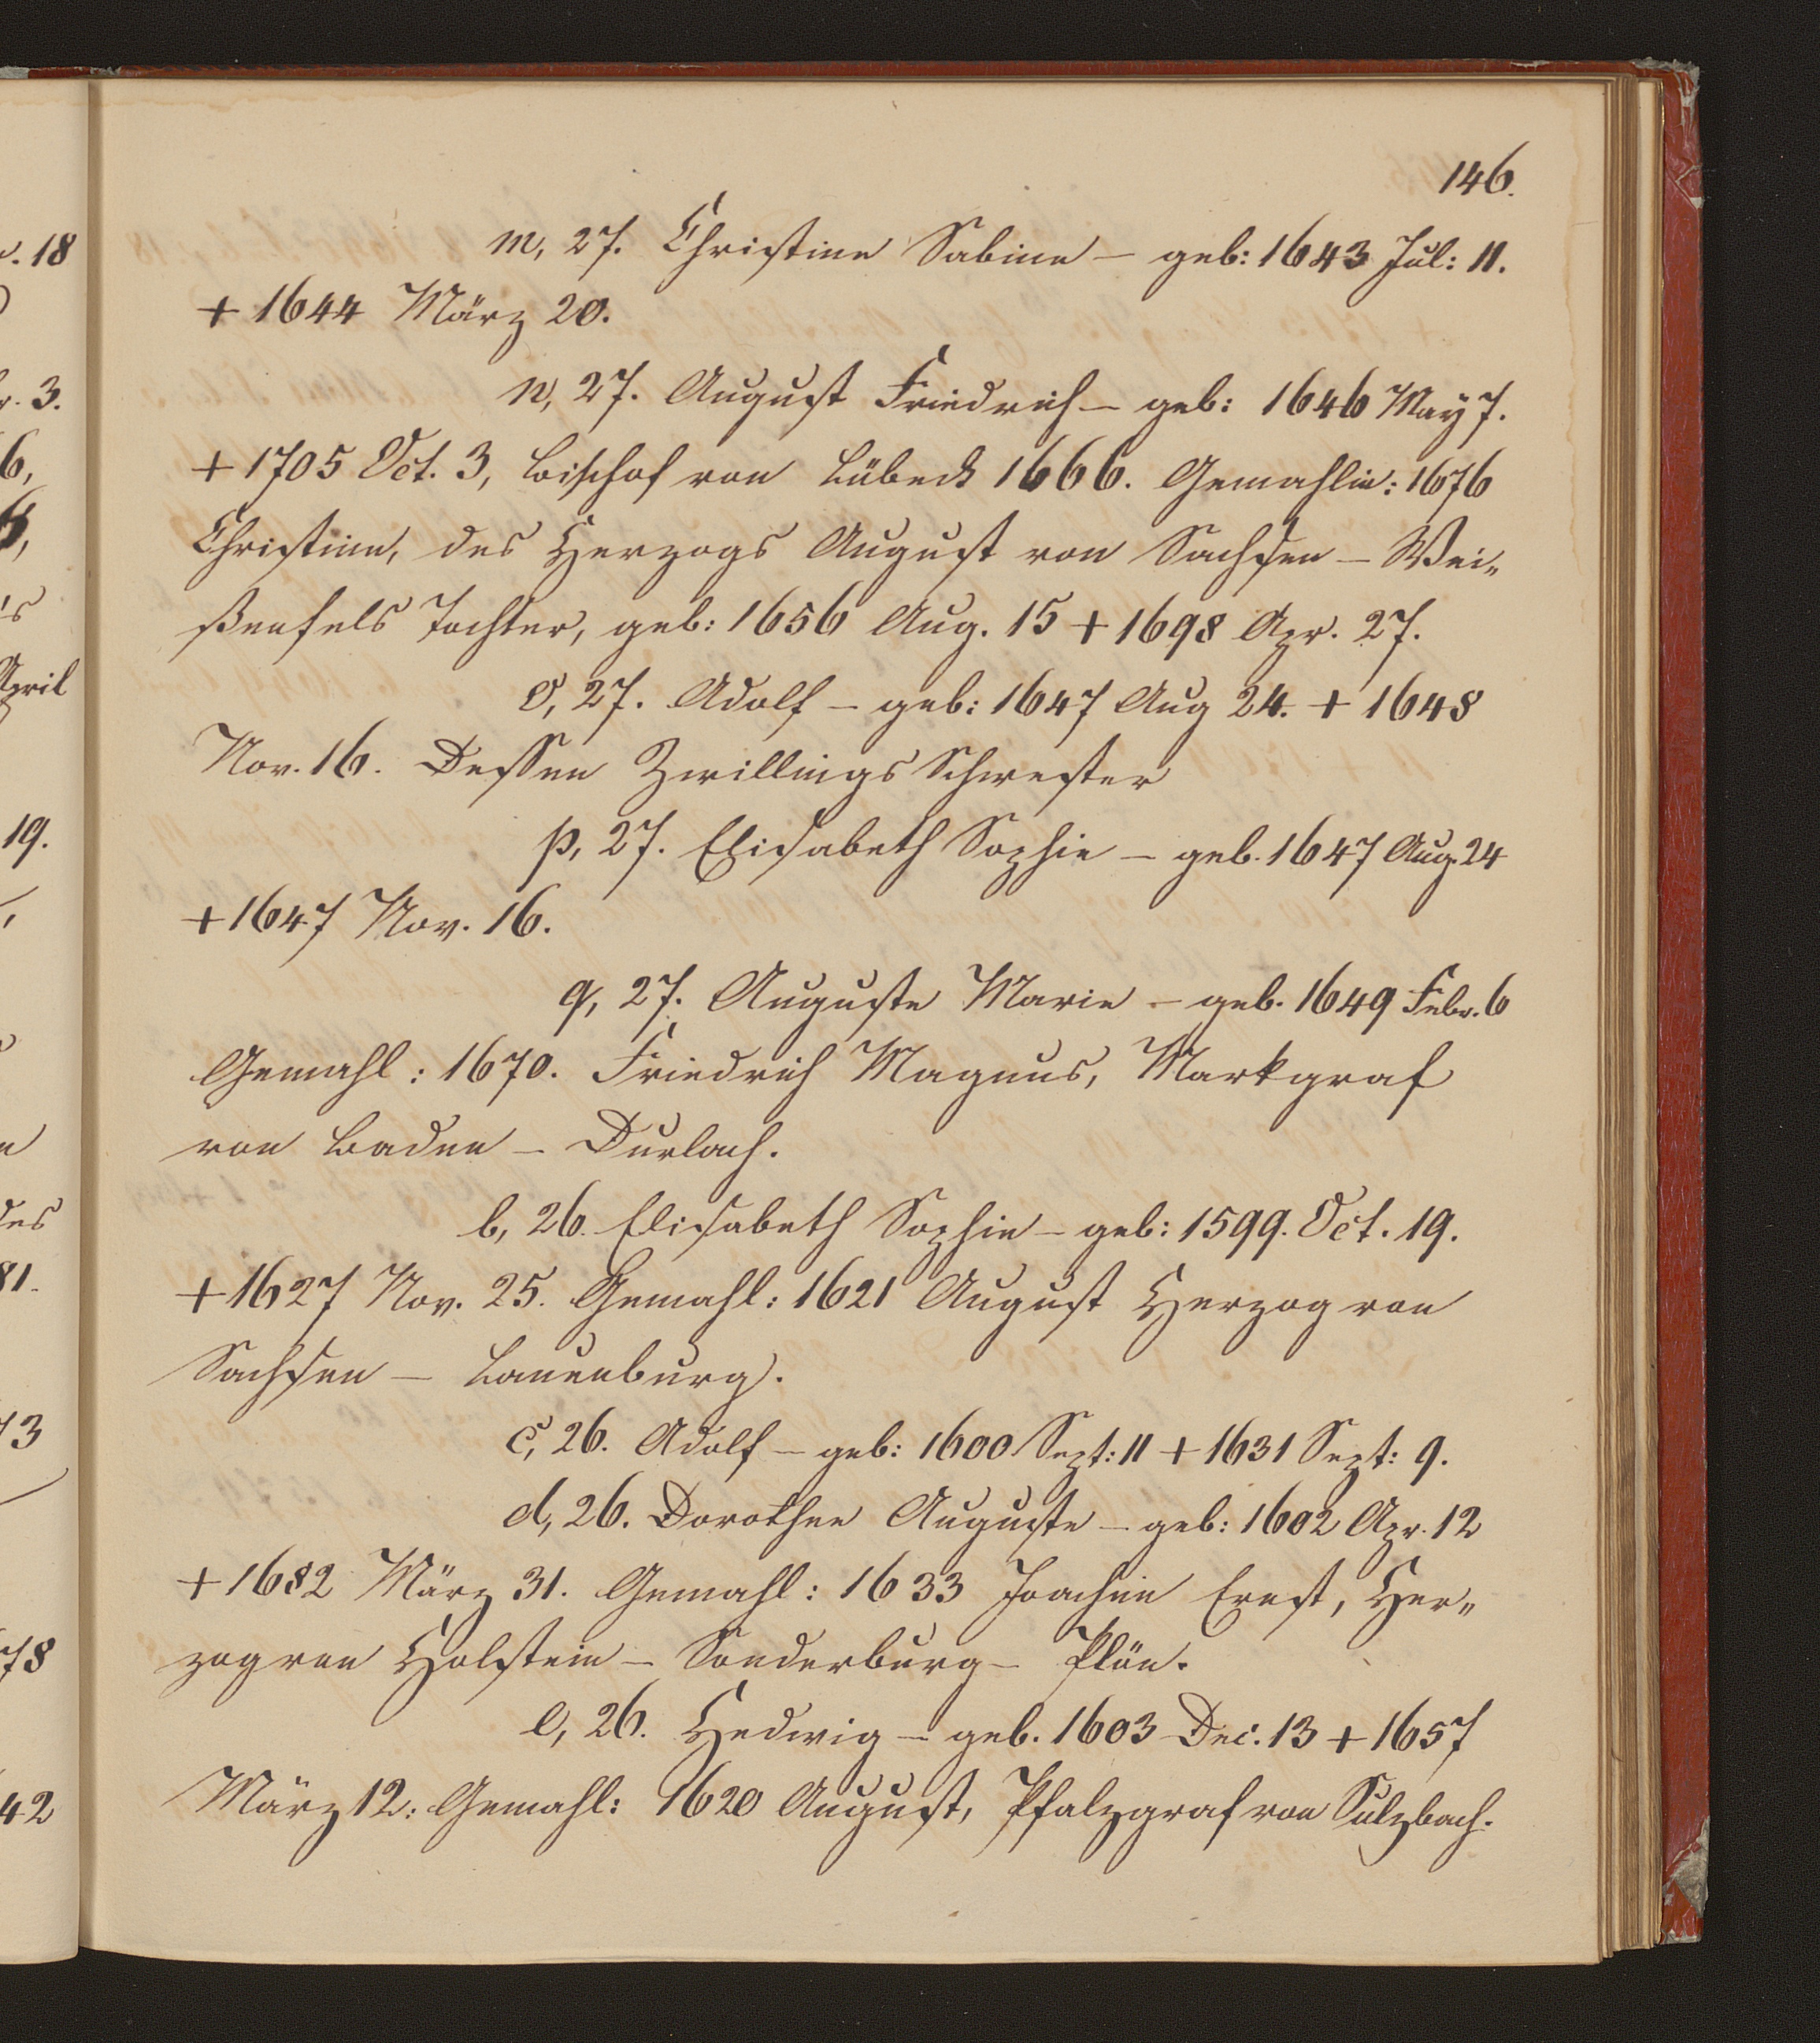 146.
m, 27. Christine Sabine – geb: 1643 Jul: 11.
+ 1644 März 20.
n, 27. August Friedrich – geb: 1646 May 7.
+ 1705 Oct. 3, Bischof von Lübeck 1666. Gemahlin: 1676
Christine, des Herzogs August von Sachsen – Wei„
ßenfels Tochter, geb: 1656 Aug. 15 + 1698 Apr. 27.
o, 27. Adolf – geb: 1647 Aug 24. + 1648
Nov. 16. Dessen Zwillings Schwester
p, 27. Elisabeth Sophie – geb. 1647 Aug. 24
+ 1647 Nov. 16.
q, 27. Auguste Marie – geb. 1649 Febr. 6
Gemahl: 1670. Friedrich Magnus, Markgraf
von Baden – Durlach.
b, 26. Elisabeth Sophie – geb: 1599. Oct. 19.
+ 1627 Nov. 25. Gemahl: 1621 August Herzog von
Sachsen – Lauenburg.
c, 26. Adolf – geb: 1600 Sept: 11 + 1631 Sept: 9.
d, 26. Dorothee Auguste – geb: 1602 Apr. 12
+ 1682 März 31. Gemahl: 1633 Joachim Ernst, Her„
zog von Holstein – Sonderburg – Plön.
e, 26. Hedwig – geb. 1603 Dec. 13 + 1657
März 12: Gemahl: 1620 August, Pfalzgraf von Sulzbach.
18
3.
6,
April
19.
des
81.
73
78
42